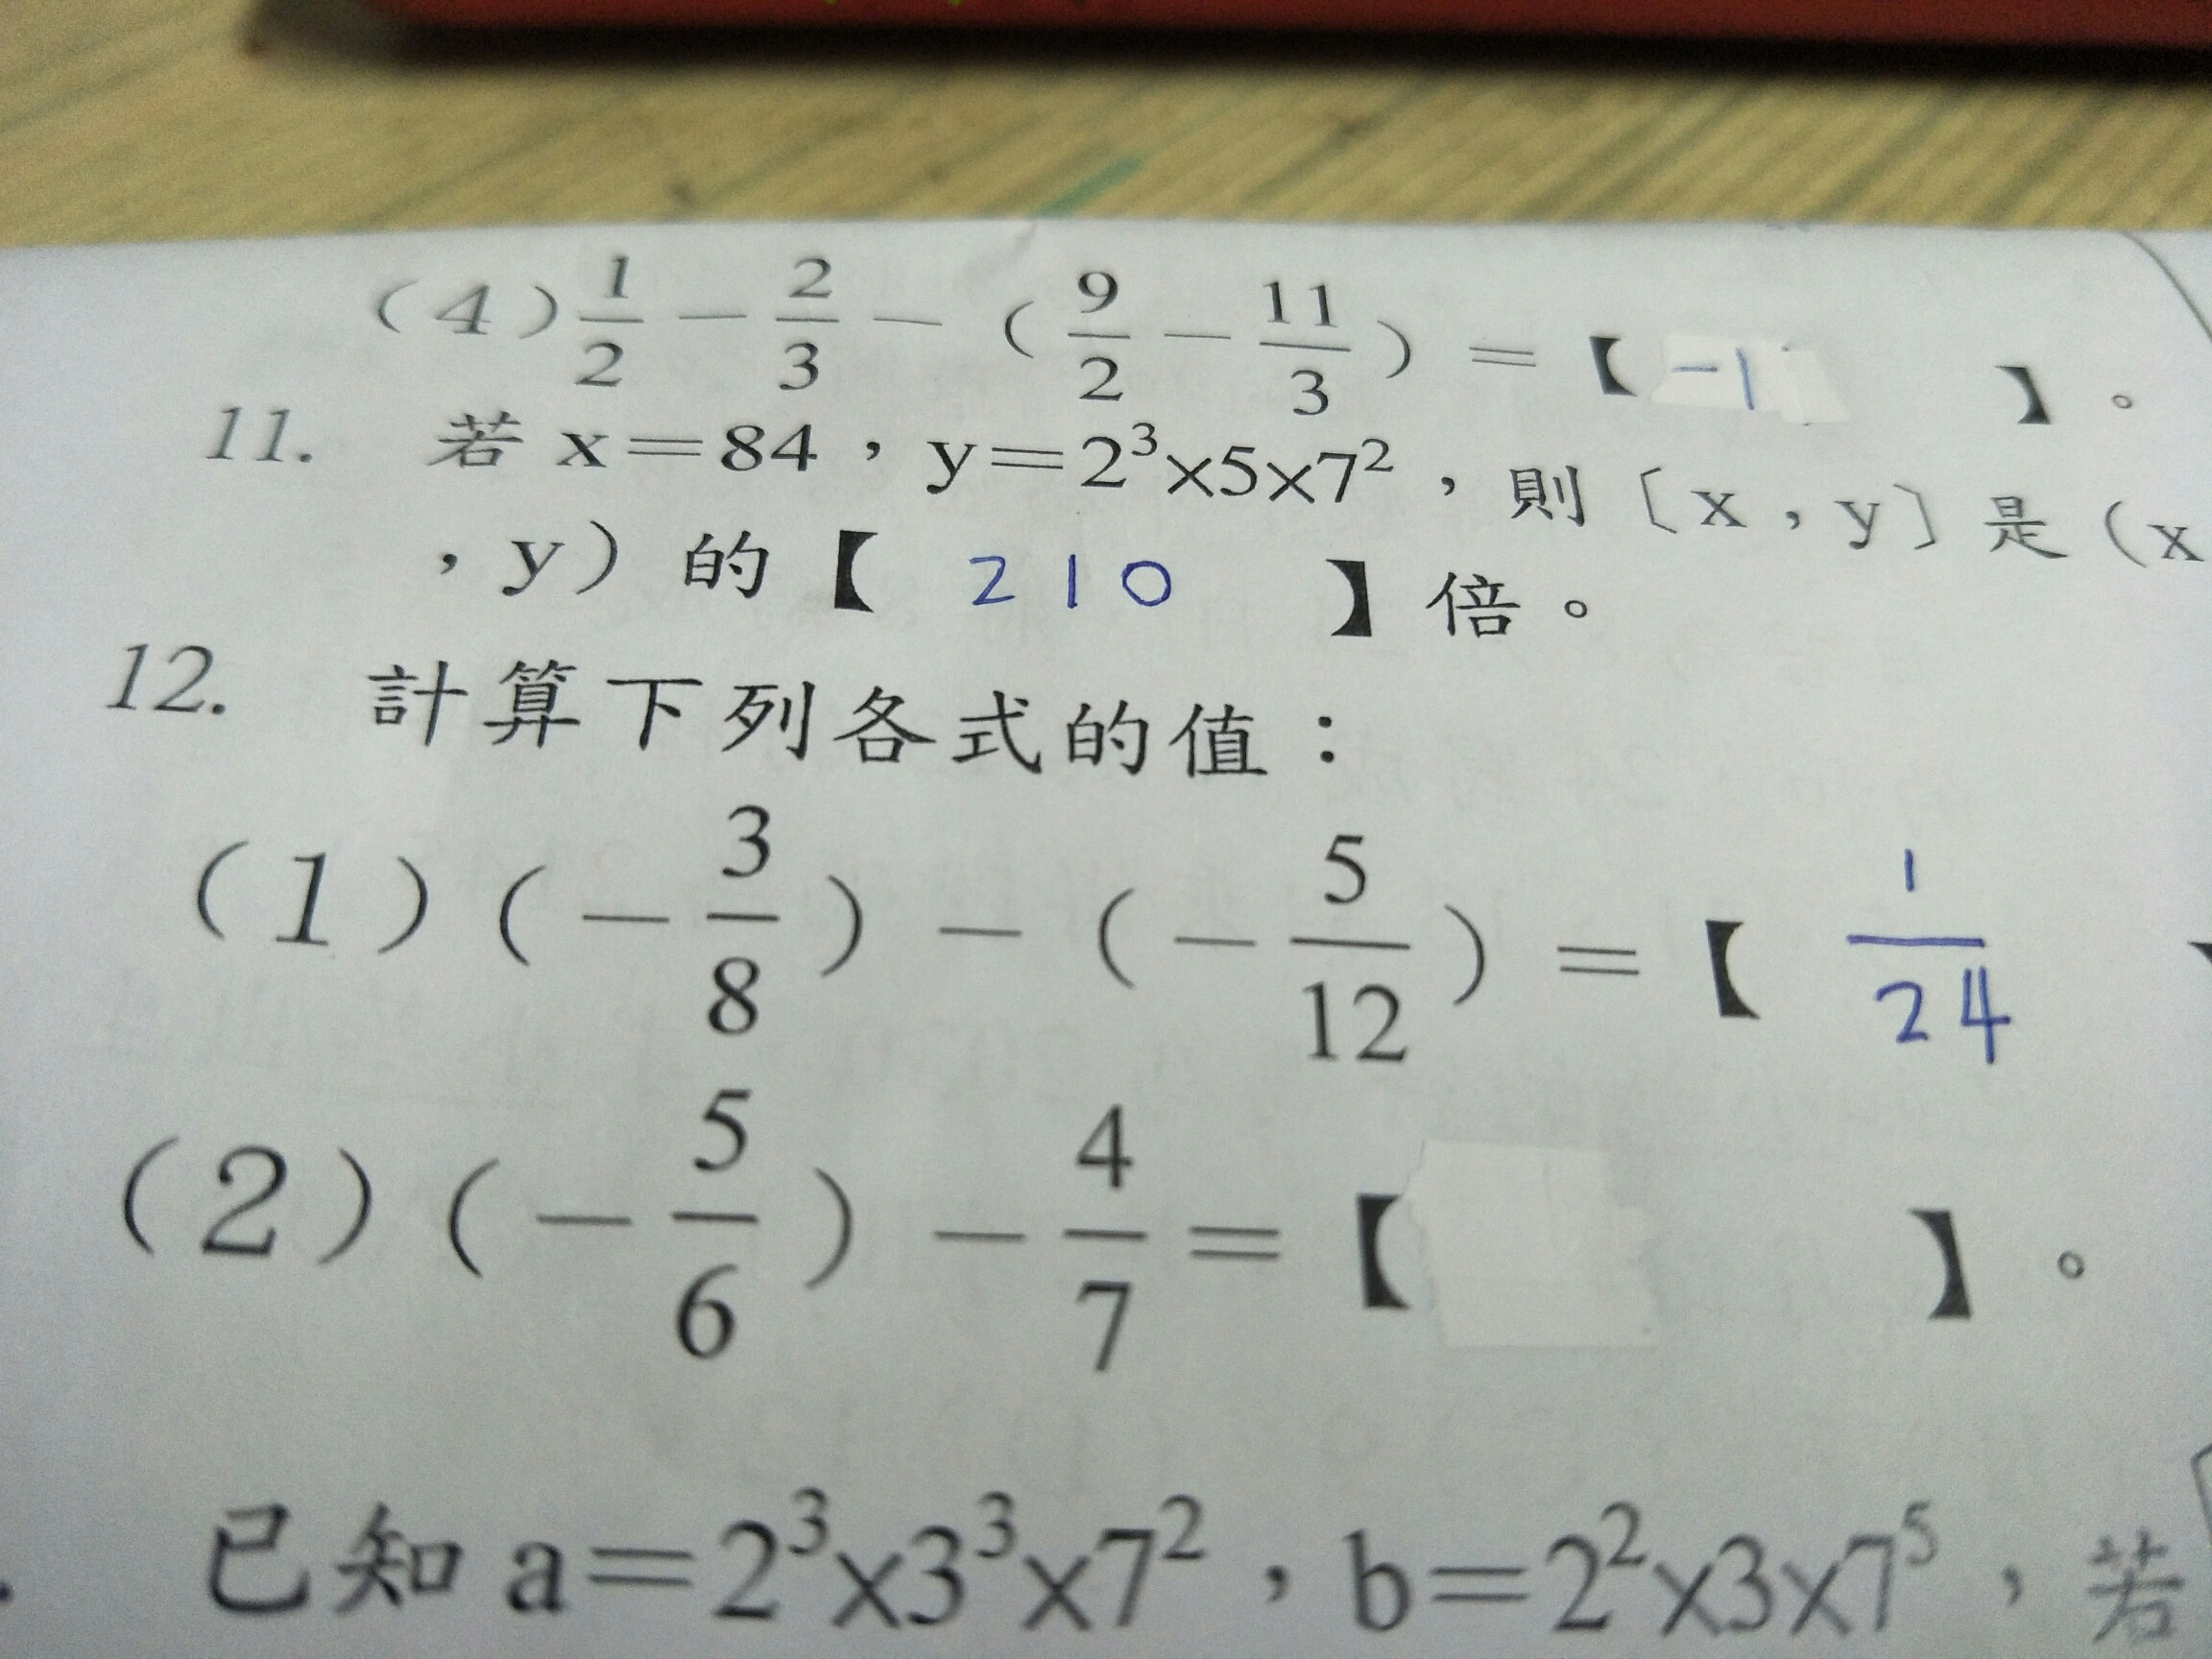 (4) 1/2 − 2/3 − (9/2 − 11/3) = 【 -1 】。
11. 若 x＝84，y＝2³×5×7²，則〔x，y〕是（x
，y）的【 210 】倍。
12. 計算下列各式的值：
(1) (−3/8) − (−5/12) = 【 1/24
(2) (−5/6) − 4/7 = 【 】。
已知 a＝2³×3³×7²，b＝2²×3×7⁵，若